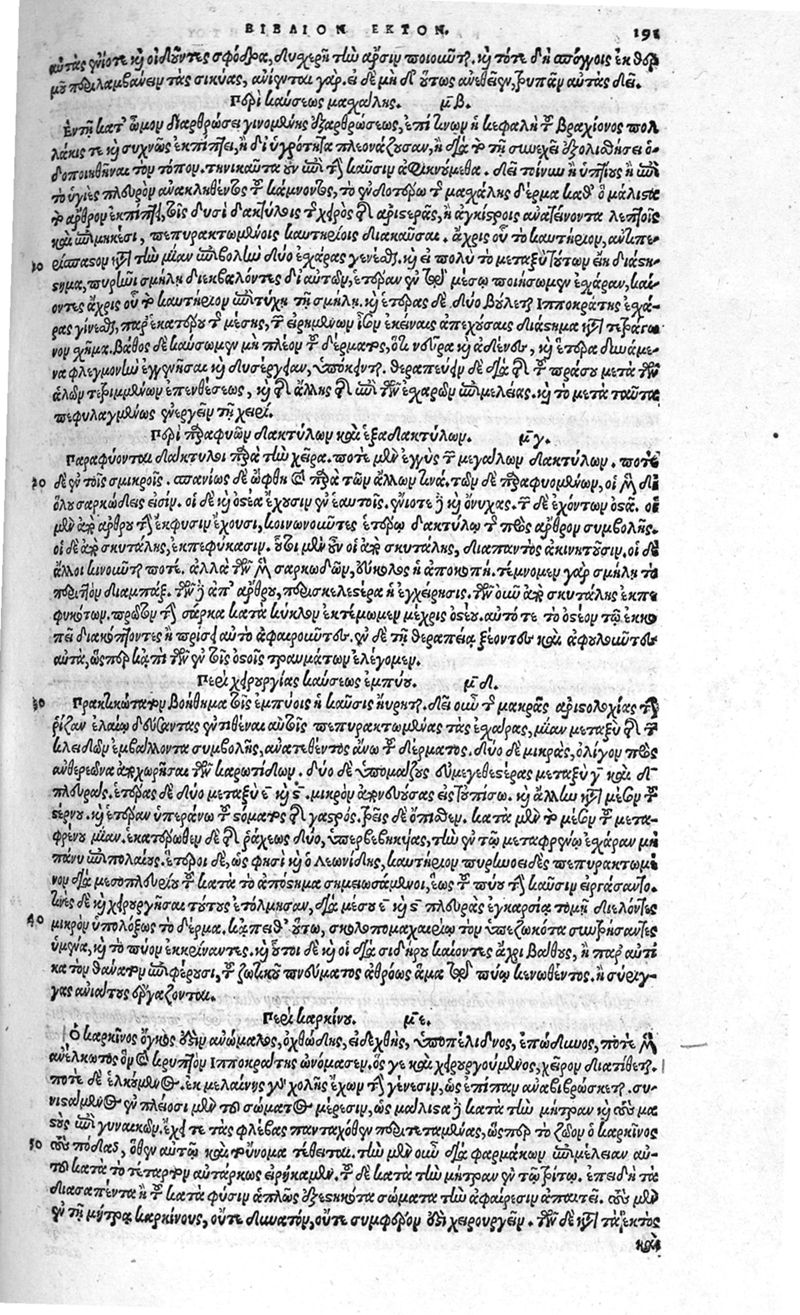 ΒΙΒΛΙΟΝ ΕΚΤΟΝ. 191
αὐτὰς ἐνίοτε καὶ οἰδοῦντες σφόδρα, δυσχερῆ τὴν ἄρσιν ποιοῦνται. καὶ τότε δὴ σπόγγοις ἐκ θερ
μοῦ περιλαμβάνειν τὰς σικύας, ἀνίενται γάρ. εἰ δὲ μὴ δ' οὕτως ἀνεθεῖεν, τρυπᾶν αὐτὰς δεῖ.
Περὶ καύσεως μασχάλης. μβ.
Ἐν τῇ κατ' ὦμον διαρθρώσει γινομένης ἐξαρθρώσεως, ἐπί τινων ἡ κεφαλὴ τοῦ βραχίονος πολ
λάκις τε καὶ συχνῶς ἐκπίπτει, ἢ δι' ὑγρότητα πλεονάζουσαν, ἢ διὰ τὸ τῇ συνεχεῖ ἐξολισθήσει ὁ-
δοποιηθῆναι τὸν τόπον. τηνικαῦτα οὖν ἐπὶ τὴν καῦσιν ἀφικνούμεθα. δεῖ τοίνυν ἢ ὑπτίου ἢ ἐπὶ
τὸ ὑγιὲς πλευρὸν ἀνακληθέντος τοῦ κάμνοντος, τὸ ἐνδοτέρω τῆς μασχάλης δέρμα καθ' ὃ μάλιστα
τὸ ἄρθρον ἐκπίπτει, τοῖς δυσὶ δακτύλοις τῆς χειρὸς τῆς ἀριστερᾶς, ἢ ἀγκίστροις ἀνατείνοντα λεπτοῖς
καὶ ἐπιμήκεσι, πεπυρακτωμένοις καυτηρίοις διακαῦσαι. ἄχρις οὗ τὸ καυτήριον, ἀντιπε-
10 ρίασαον κατὰ τὴν μίαν ἐπιβολὴν δύο ἐσχάρας γενέσθαι. καὶ εἰ πολὺ τὸ μεταξὺ τούτων εἴη διάστη-
μα, πυρῆνι σμήλη διεκβαλόντες δι' αὐτῶν, ἑτέραν ἐν τῷ μέσῳ ποιήσωμεν ἐσχάραν, καί-
οντες ἄχρις οὗ τὸ καυτήριον ἐπιτύχῃ τῇ σμήλῃ. καὶ ἑτέρας δὲ δύο βούλεται Ἱπποκράτης ἐσχά-
ρας γίνεσθαι, παρ' ἑκατέρου τῆς μέσης, τῶν εἰρημένων ἴσον ἐκείναις ἀπεχούσαις διάστημα κατὰ τετράγω
νον σχῆμα. βάθος δὲ καύσωμεν μὴ πλέον τοῦ δέρματος, ὅτι νεῦρα καὶ ἀδένες, καὶ ἕτερα δυνάμε-
να φλεγμονὴν ἐγγεννῆσαι καὶ δυσέργειαν, ὑπόκειται. θεραπεύειν δὲ διὰ τοῦ πράσου μετὰ τῶν
ἁλῶν τετριμμένων ἐπενθέσεως, καὶ τῆς ἄλλης τῆς ἐπὶ τῶν ἐσχαρῶν ἐπιμελείας. καὶ τὸ μετὰ ταῦτα
πεφυλαγμένως ἐνεργεῖν τῇ χειρί.
Περὶ παραφυῶν δακτύλων καὶ ἑξαδακτύλων. μγ.
Παραφύονται δάκτυλοι παρὰ τὴν χεῖρα. ποτὲ μὲν ἐγγὺς τῶν μεγάλων δακτύλων. ποτὲ
20 δὲ ἐν τοῖς σμικροῖς. σπανίως δὲ ὤφθη καὶ παρὰ τῶν ἄλλων τινά. τῶν δὲ παραφυομένων, οἱ μὲν δι'
ὅλου σαρκώδεις εἰσίν. οἱ δὲ καὶ ὀστέα ἔχουσιν ἐν ἑαυτοῖς. ἐνίοτε δὲ καὶ ὄνυχας. τῶν δὲ ἐχόντων ὀστᾶ. οἱ
μὲν ἀπ' ἄρθρου τὴν ἔκφυσιν ἔχουσι, κοινωνοῦντες ἑτέρῳ δακτύλῳ τῆς πρὸς ἄρθρον συμβολῆς.
οἱ δὲ ἀπὸ σκυτάλης, ἐκπεφύκασιν. οἱ μὲν οὖν οἱ ἀπὸ σκυτάλης, διαπαντὸς ἀκινητοῦσιν. οἱ δὲ
ἄλλοι κινοῦνται ποτέ. ἀλλὰ τῶν μὲν σαρκωδῶν, εὔκολος ἡ ἀποκοπή. τέμνομεν γὰρ σμήλῃ τὸ
περιττὸν διαμπάξ. τῶν δὲ ἀπ' ἄρθρου, περισκελεστέρα ἡ ἐγχείρησις. τῶν οὖν ἀπὸ σκυτάλης ἐκπε
φυκότων. πρῶτον τὴν σάρκα κατὰ κύκλον ἐκτέμωμεν μέχρις ὀστέου. αὐτό τε τὸ ὀστέον τῷ ἐκκο
πεῖ διακόπτοντες ἢ πρίσει αὐτὸ ἀφαιροῦντες. ἐν δὲ τῇ θεραπείᾳ ξέοντες καὶ ἀφυλοῦντες
αὐτὰ, ὥσπερ κἀπὶ τῶν ἐν τοῖς ὀστοῖς τραυμάτων ἐλέγομεν.
Περὶ χειρουργίας καύσεως ἐμπύου. μδ.
30 Πρακτικώτατον βοήθημα τοῖς ἐμπύοις ἡ καῦσις ηὕρηται. δεῖ οὖν τῆς μακρᾶς ἀριστολοχίας τὴν
ῥίζαν ἐλαίῳ δεύσαντας ἐντιθέναι αὐτοῖς πεπυρακτωμένας τὰς ἐσχάρας, μίαν μεταξὺ τῆς τῶν
κλειδῶν ἐμβάλλοντα συμβολῆς, ἀνατεθέντος ἄνω τοῦ δέρματος. δύο δὲ μικρὰς, ὀλίγον πρὸς
ἀνθερεῶνα ἀποχωρῆσαι τῶν καρωτίδων. δύο δὲ ὑπομάζους εὐμεγεθεστέρας μεταξὺ γ καὶ δ
πλευρᾶς. ἑτέρας δὲ δύο μεταξὺ ε καὶ ϛ. μικρὸν ἀπονευούσας εἰς τοὐπίσω. καὶ ἄλλην κατὰ μέσον τοῦ
στέρνου. καὶ ἑτέραν ὑπεράνω τοῦ στόματος τῆς γαστρός. τρεῖς δὲ ὄπισθεν. κατὰ μὲν τὸ μέσον τοῦ μετα-
φρένου μίαν. ἑκατέρωθεν δὲ τῆς ῥάχεως δύο, ὑπερβεβηκυίας, τὴν ἐν τῷ μεταφρένῳ ἐσχάραν μὴ
πάνυ ἐπιπολαίους. ἕτεροι δὲ, ὥς φησι καὶ ὁ Λεωνίδης, καυτήριον πυρηνοειδὲς πεπυρακτωμέ
νον διὰ μεσοπλευρίου τοῦ κατὰ τὸ ἀπόστημα σημειωσάμενοι, ἕως τοῦ πύου τὴν καῦσιν εἰργάσαντο.
τινὲς δὲ καὶ χειρουργῆσαι τούτους ἐτόλμησαν, διὰ μέσου ε καὶ ϛ πλευρᾶς ἐγκαρσίᾳ τομῇ διελόντες
40 μικρὸν ὑπολόξως τὸ δέρμα. κἄπειθ' οὕτω, σκολοπομαχαιρίῳ τὸν ὑπεζωκότα συντρήσαντες
ὑμένα, καὶ τὸ πύον ἐκκρίναντες. καὶ οὗτοι δὲ καὶ οἱ διὰ σιδήρου καίοντες ἄχρι βάθους, ἢ παραυτί
κα τὸν θάνατον ἐπιφέρουσι, τοῦ ζωτικοῦ πνεύματος ἀθρόως ἅμα τῷ πύῳ κενωθέντος. ἢ σύριγ-
γας ἀνιάτους ἐργάζονται.
Περὶ καρκίνου. με.
Ὁ καρκῖνος ὄγκος ἐστὶν ἀνώμαλος, ὀχθώδης, εἰδεχθὴς, ὑποπέλιδνος, ἐπώδυνος, ποτὲ μὲν
ἀνέλκωτος ὃν καὶ κρυπτὸν Ἱπποκράτης ὠνόμασεν, ὅς γε καὶ χειρουργούμενος, χεῖρον διατίθεται.
ποτὲ δὲ ἑλκούμενος. ἐκ μελαίνης γὰρ χολῆς ἔχων τὴν γένεσιν, ὡς ἐπίπαν ἀναβιβρώσκεται. συ-
νιστάμενος ἐν πλείοσι μὲν τοῦ σώματος μέρεσιν, ὡς μάλιστα δὲ κατὰ τὴν μήτραν καὶ τοὺς μα
στοὺς ἐπὶ γυναικῶν. ἔχει τε τὰς φλέβας πανταχόθεν περιτεταμένας, ὥσπερ τὸ ζῶον ὁ καρκῖνος
50 τοὺς πόδας, ὅθεν αὐτῷ καὶ τοὔνομα τέθειται. τὴν μὲν οὖν διὰ φαρμάκων ἐπιμέλειαν αὐ-
τοῦ κατὰ τὸ τέταρτον αὐτάρκως εἰρήκαμεν. τοῦ δὲ κατὰ τὴν μήτραν ἐν τῷ τρίτῳ. ἐπειδὴ τὰ
διασαπέντα ἢ τοῦ κατὰ φύσιν ἁπλῶς ἐξεστηκότα σώματα τὴν ἀφαίρεσιν ἀπαιτεῖ. τοὺς μὲν
ἐν τῇ μήτρᾳ καρκίνους, οὔτε δυνατὸν, οὔτε συμφέρον ἐστὶ χειρουργεῖν. τῶν δὲ κατὰ τὰ ἐκτὸς
καὶ